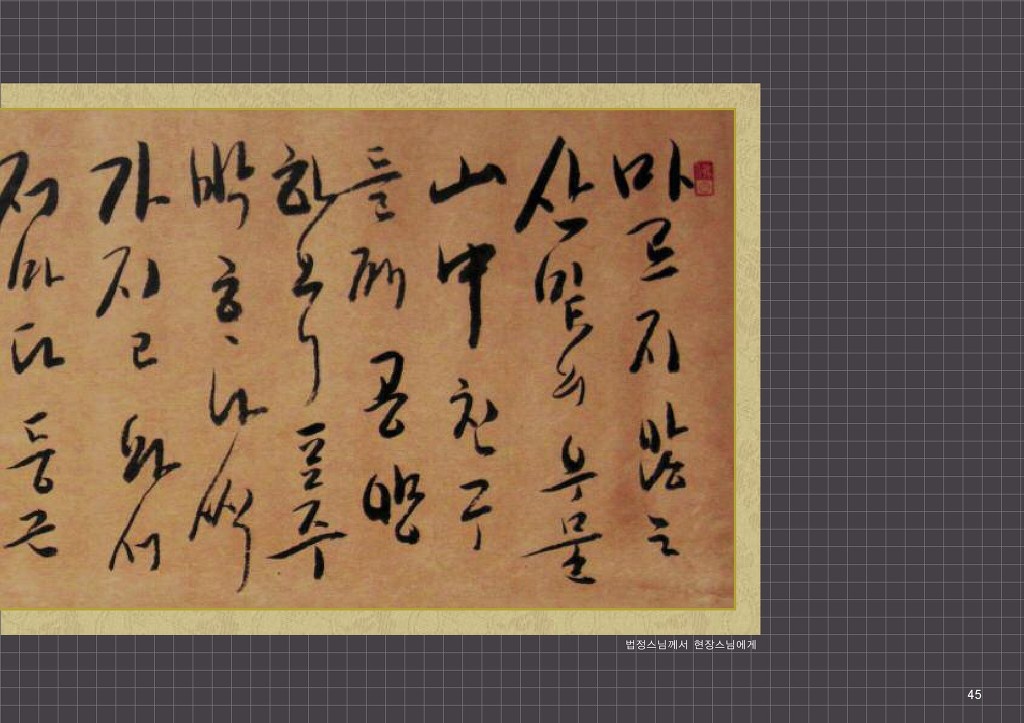 마르지 않는
산밑의 우물
山中 친구
들께 공양
하오니 표주
박 하나씩
가지고 와서
저마다 둥근
법정스님께서 현장스님에게
45